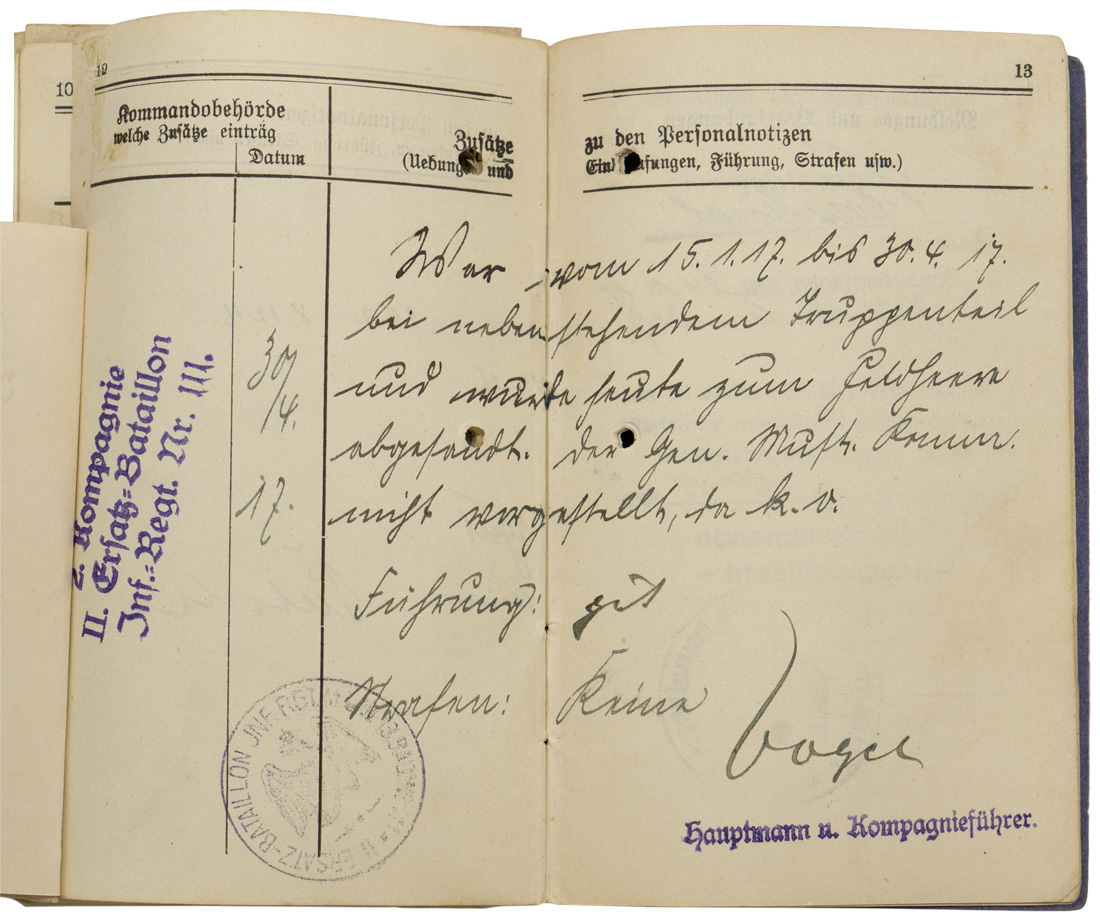 10
12
13
Kommandobehörde
welche Zusätze einträgt
Datum
Zusätze zu den Personalnotizen
(Uebungen und Führung, Strafen usw.)
2. Kompagnie
II. Ersatz-Bataillon
Inf.-Regt. Nr. 111.
30/4. 17.
War vom 15.1.17. bis 30.4. 17.
bei nebenstehendem Truppenteil
und wurde heute zum Feldheere
abgesandt. der Gen. Must. Komm.
nicht vorgestellt, da k. v.
Führung: gut
Strafen: Keine
Vogel
Hauptmann u. Kompagnieführer.
II. ERSATZ-BATAILLON INF. RGT.